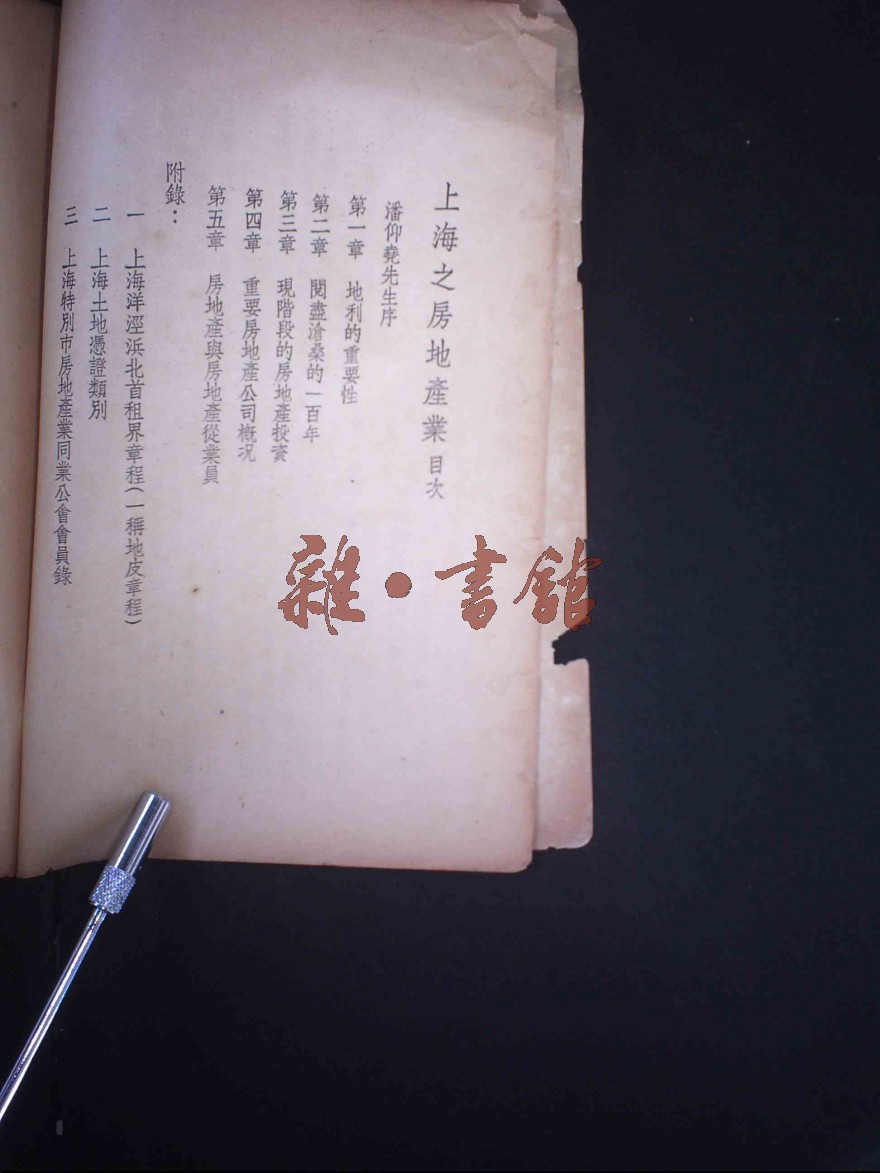 上海之房地產業 目次
潘仰堯先生序
第一章 地利的重要性
第二章 閱盡滄桑的一百年
第三章 現階段的房地產投資
第四章 重要房地產公司概況
第五章 房地產與房地產從業員
附錄：
一 上海洋涇浜北首租界章程(一稱地皮章程)
二 上海土地憑證類別
三 上海特別市房地產業同業公會會員錄
雜·書館